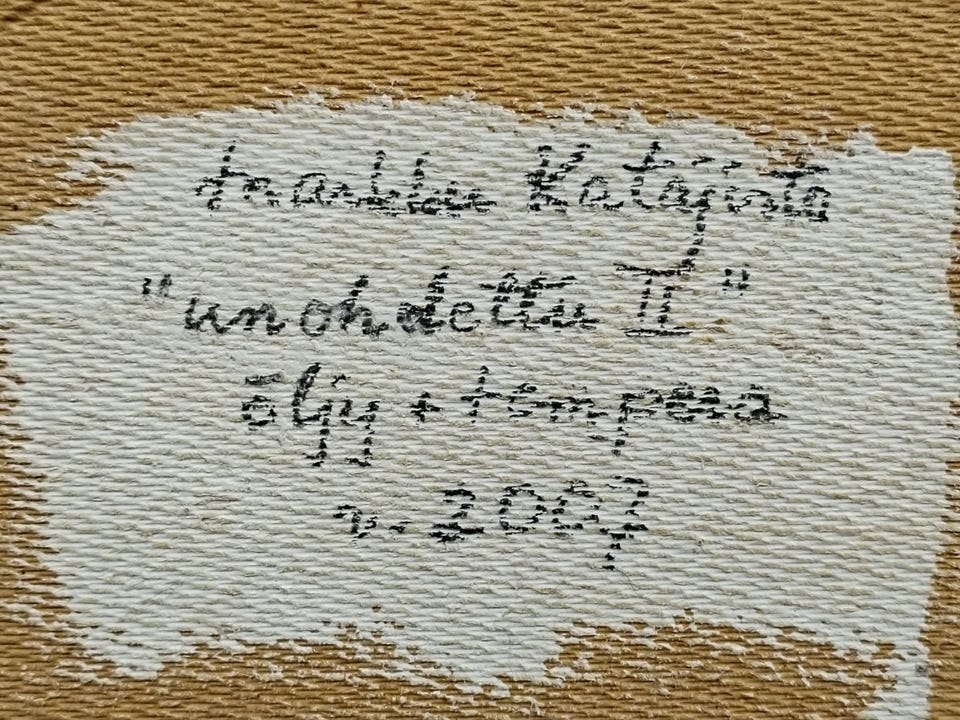 Katajisto
"unohdettu II"
öljy + tempera
v. 2007